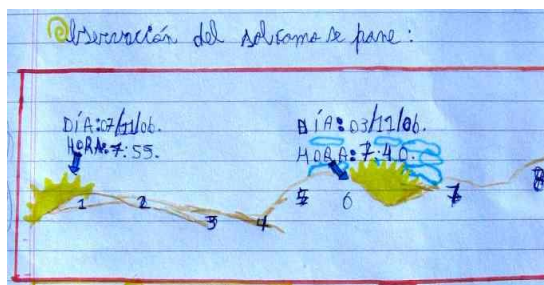 Observación del sol como se pone:
DÍA:07/11/06.
HORA:7:55.
DÍA:03/11/06.
HORA:7:40.
1 2 3 4 5 6 7 8